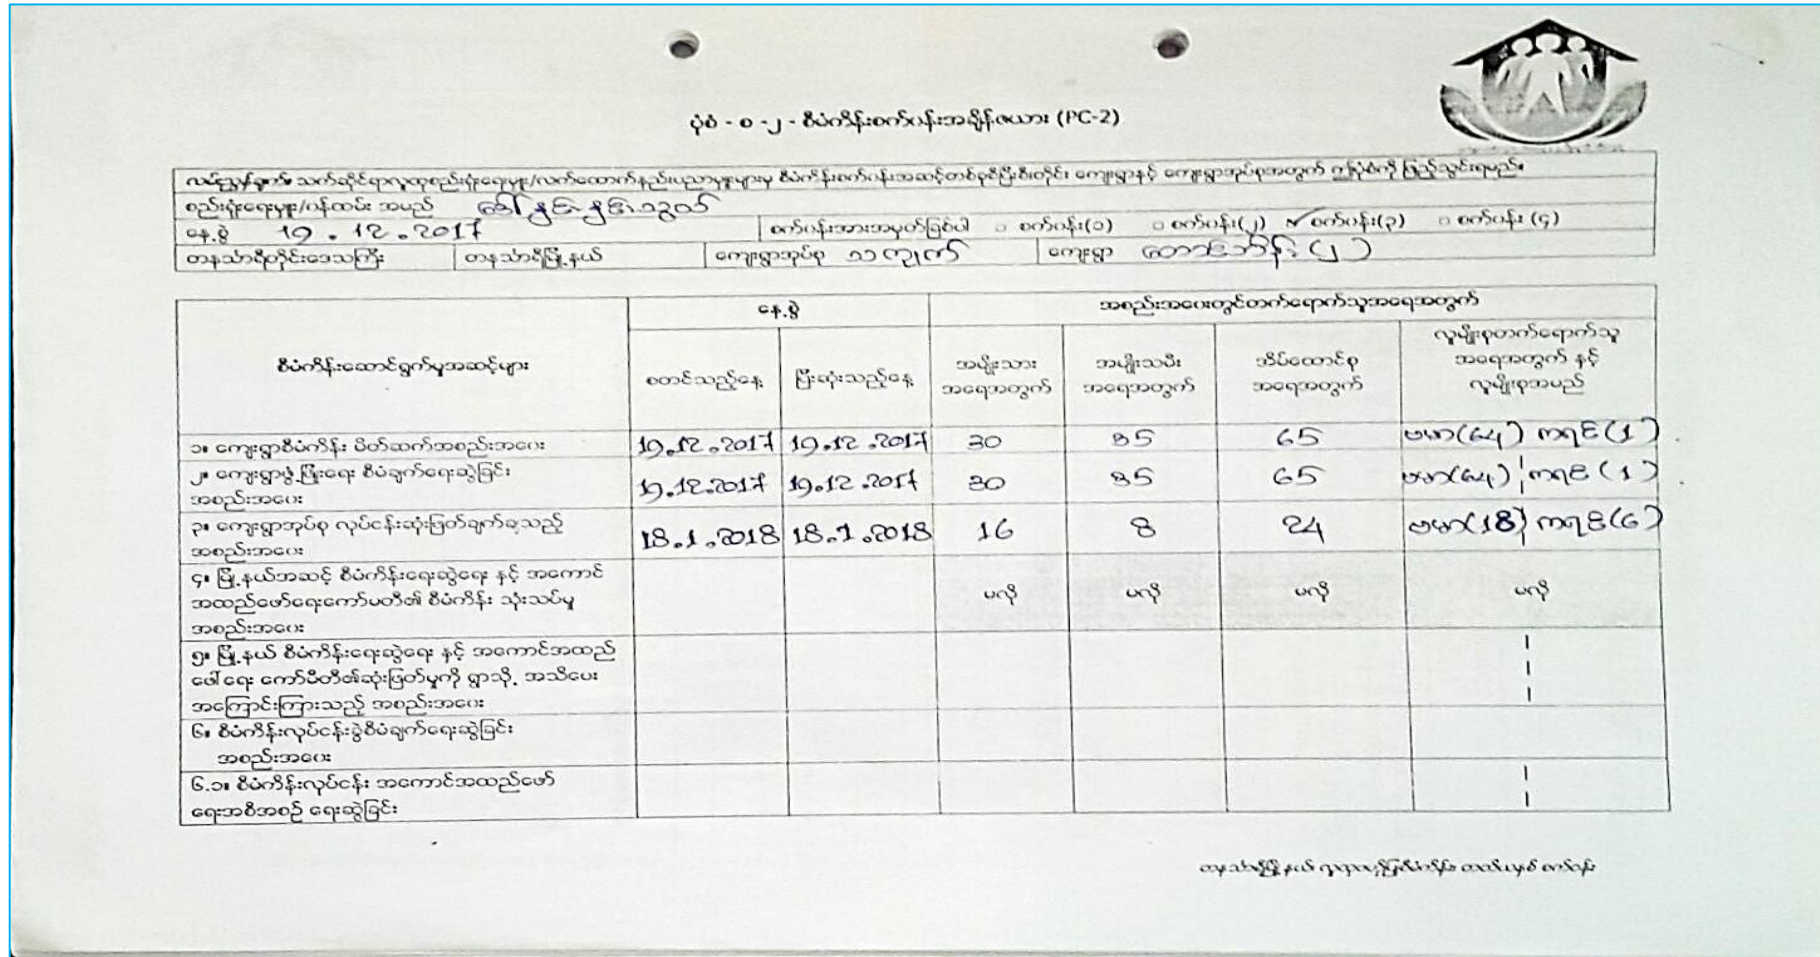 ပုံစံ - စ -၂ - စီမံကိန်းစက်ဝန်းအချိန်ဇယား (PC-2)
လမ်းညွှန်ချက်။ သက်ဆိုင်ရာလူထုစည်းရုံးရေးမှူး/လက်ထောက်နည်းပညာမှူးများမှ စီမံကိန်းစက်ဝန်းအဆင့်တစ်ခုစီပြီးစီးတိုင်း ကျေးရွာနှင့် ကျေးရွာအုပ်စုအတွက် ဤပုံစံကို ဖြည့်သွင်းရမည်။
စည်းရုံးရေးမှူး/ဝန်ထမ်း အမည် ဒေါ်နှင်းနှင်း
နေ့စွဲ 19.12.2017 စက်ဝန်းအားအမှတ်ခြစ်ပါ □ စက်ဝန်း(၁) □ စက်ဝန်း(၂) ✓ စက်ဝန်း(၃) □ စက်ဝန်း (၄)
တနင်္သာရီတိုင်းဒေသကြီး တနင်္သာရီမြို့နယ် ကျေးရွာအုပ်စု ကျေးရွာ (၂)
စီမံကိန်းဆောင်ရွက်မှုအဆင့်များ နေ့စွဲ အစည်းအဝေးတွင်တက်ရောက်သူအရေအတွက်
စတင်သည့်နေ့ ပြီးဆုံးသည့်နေ့ အမျိုးသား အရေအတွက် အမျိုးသမီး အရေအတွက် အိမ်ထောင်စု အရေအတွက် လူမျိုးစုတက်ရောက်သူ အရေအတွက် နှင့် လူမျိုးစုအမည်
၁။ ကျေးရွာစီမံကိန်း မိတ်ဆက်အစည်းအဝေး 19.12.2017 19.12.2017 30 35 65 ဗမာ(၆၄) ကရင်(1)
၂။ ကျေးရွာဖွံ့ဖြိုးရေး စီမံချက်ရေးဆွဲခြင်း
အစည်းအဝေး 19.12.2017 19.12.2017 30 35 65 ဗမာ(၆၄) ကရင်(1)
၃။ ကျေးရွာအုပ်စု လုပ်ငန်းဆုံးဖြတ်ချက်ချသည့်
အစည်းအဝေး 18.1.2018 18.1.2018 16 8 24 ဗမာ(18) ကရင်(6)
၄။ မြို့နယ်အဆင့် စီမံကိန်းရေးဆွဲရေး နှင့် အကောင်
အထည်ဖော်ရေးကော်မတီ၏ စီမံကိန်း သုံးသပ်မှု
အစည်းအဝေး မလို မလို မလို မလို
၅။ မြို့နယ် စီမံကိန်းရေးဆွဲရေး နှင့် အကောင်အထည်
ဖေါ်ရေး ကော်မီတီ၏ဆုံးဖြတ်မှုကို ရွာသို့ အသိပေး
အကြောင်းကြားသည့် အစည်းအဝေး
၆။ စီမံကိန်းလုပ်ငန်းခွဲစီမံချက်ရေးဆွဲခြင်း
အစည်းအဝေး
၆.၁။ စီမံကိန်းလုပ်ငန်း အကောင်အထည်ဖော်
ရေးအစီအစဉ် ရေးဆွဲခြင်း